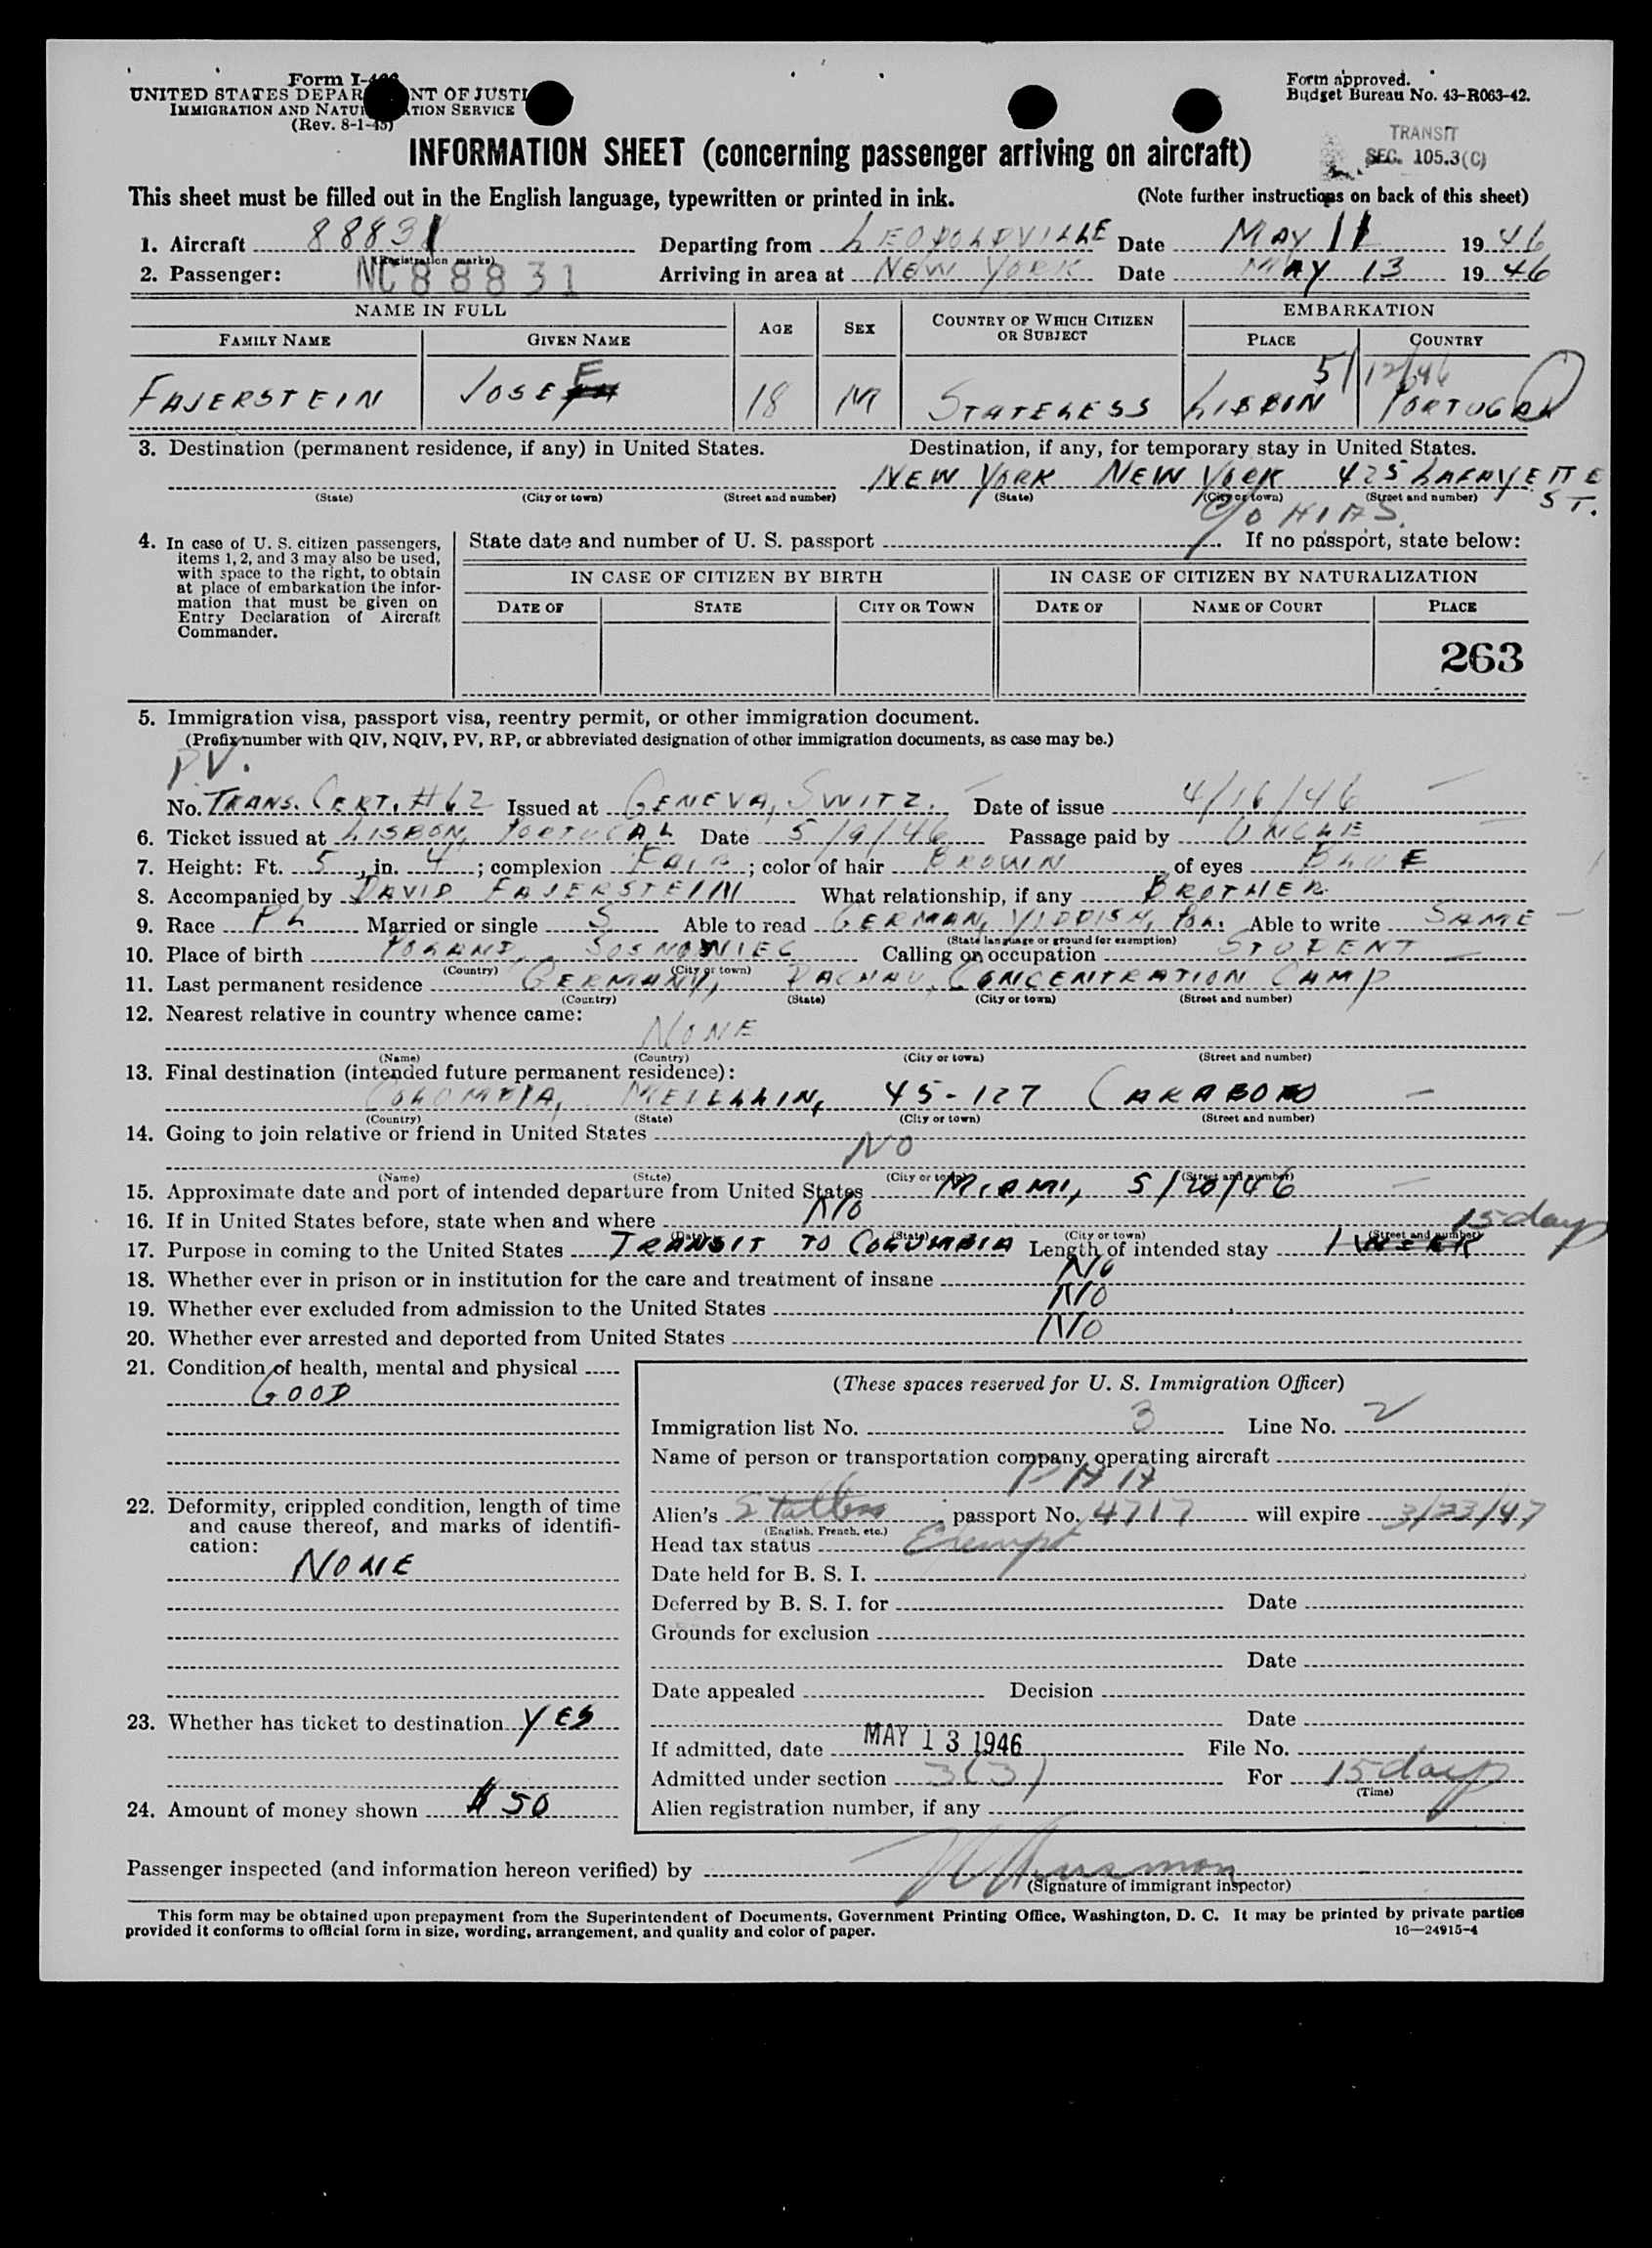 Form I-466
UNITED STATES DEPAR NT OF JUSTI
IMMIGRATION AND NATU TION SERVICE
(Rev. 8-1-45)
Form approved.
Budget Bureau No. 43-R063-42.
TRANSIT
SEC. 105.3(C)
INFORMATION SHEET (concerning passenger arriving on aircraft)
This sheet must be filled out in the English language, typewritten or printed in ink. (Note further instructions on back of this sheet)
1. Aircraft 88831 Departing from LEOPOLDVILLE Date MAY 11 1946
(Registration marks)
2. Passenger: NC88831 Arriving in area at NEW YORK Date MAY 13 1946
NAME IN FULL AGE SEX COUNTRY OF WHICH CITIZEN OR SUBJECT EMBARKATION
FAMILY NAME GIVEN NAME PLACE COUNTRY
5/12/46
FAJERSTEIN JOSEF 18 M STATELESS LISBON PORTUGAL
3. Destination (permanent residence, if any) in United States. Destination, if any, for temporary stay in United States.
NEW YORK NEW YORK 425 LAFAYETTE ST.
(State) (City or town) (Street and number) (State) (City or town) (Street and number)
C/O H.I.A.S.
4. In case of U. S. citizen passengers, items 1, 2, and 3 may also be used, with space to the right, to obtain at place of embarkation the information that must be given on Entry Declaration of Aircraft Commander.
State date and number of U. S. passport If no passport, state below:
IN CASE OF CITIZEN BY BIRTH IN CASE OF CITIZEN BY NATURALIZATION
DATE OF STATE CITY OR TOWN DATE OF NAME OF COURT PLACE
263
5. Immigration visa, passport visa, reentry permit, or other immigration document.
(Prefix number with QIV, NQIV, PV, RP, or abbreviated designation of other immigration documents, as case may be.)
P.V.
No. TRANS. CERT. #62 Issued at GENEVA, SWITZ. Date of issue 4/16/46
6. Ticket issued at LISBON, PORTUGAL Date 5/9/46 Passage paid by UNCLE
7. Height: Ft. 5, in. 4; complexion FAIR; color of hair BROWN of eyes BLUE
8. Accompanied by DAVID FAJERSTEIN What relationship, if any BROTHER
9. Race PL Married or single S Able to read GERMAN, YIDDISH, POL. Able to write SAME
(State language or ground for exemption)
10. Place of birth POLAND, SOSNOWIEC Calling or occupation STUDENT
(Country) (City or town)
11. Last permanent residence GERMANY, DACHAU, CONCENTRATION CAMP
(Country) (State) (City or town) (Street and number)
12. Nearest relative in country whence came:
NONE
(Name) (Country) (City or town) (Street and number)
13. Final destination (intended future permanent residence):
COLOMBIA, MEDELLIN, 45-127 CARABOBO
(Country) (State) (City or town) (Street and number)
14. Going to join relative or friend in United States
NO
(Name) (State) (City or town) (Street and number)
15. Approximate date and port of intended departure from United States MIAMI, 5/20/46
16. If in United States before, state when and where NO
(Date) (State) (City or town) (Street and number)
15 days
17. Purpose in coming to the United States TRANSIT TO COLUMBIA Length of intended stay 1 WEEK
18. Whether ever in prison or in institution for the care and treatment of insane NO
19. Whether ever excluded from admission to the United States NO
20. Whether ever arrested and deported from United States NO
21. Condition of health, mental and physical
GOOD
22. Deformity, crippled condition, length of time and cause thereof, and marks of identification:
NONE
23. Whether has ticket to destination YES
24. Amount of money shown $50
(These spaces reserved for U. S. Immigration Officer)
Immigration list No. 3 Line No. 2
Name of person or transportation company operating aircraft
PAA
Alien's passport No. 4717 will expire 3/23/47
(English, French, etc.)
Head tax status Exempt
Date held for B. S. I.
Deferred by B. S. I. for Date
Grounds for exclusion
Date
Date appealed Decision
Date
If admitted, date MAY 13 1946 File No.
Admitted under section 3(3) For 15 days
(Time)
Alien registration number, if any
Passenger inspected (and information hereon verified) by
(Signature of immigrant inspector)
This form may be obtained upon prepayment from the Superintendent of Documents, Government Printing Office, Washington, D. C. It may be printed by private parties
provided it conforms to official form in size, wording, arrangement, and quality and color of paper. 16—24915-4